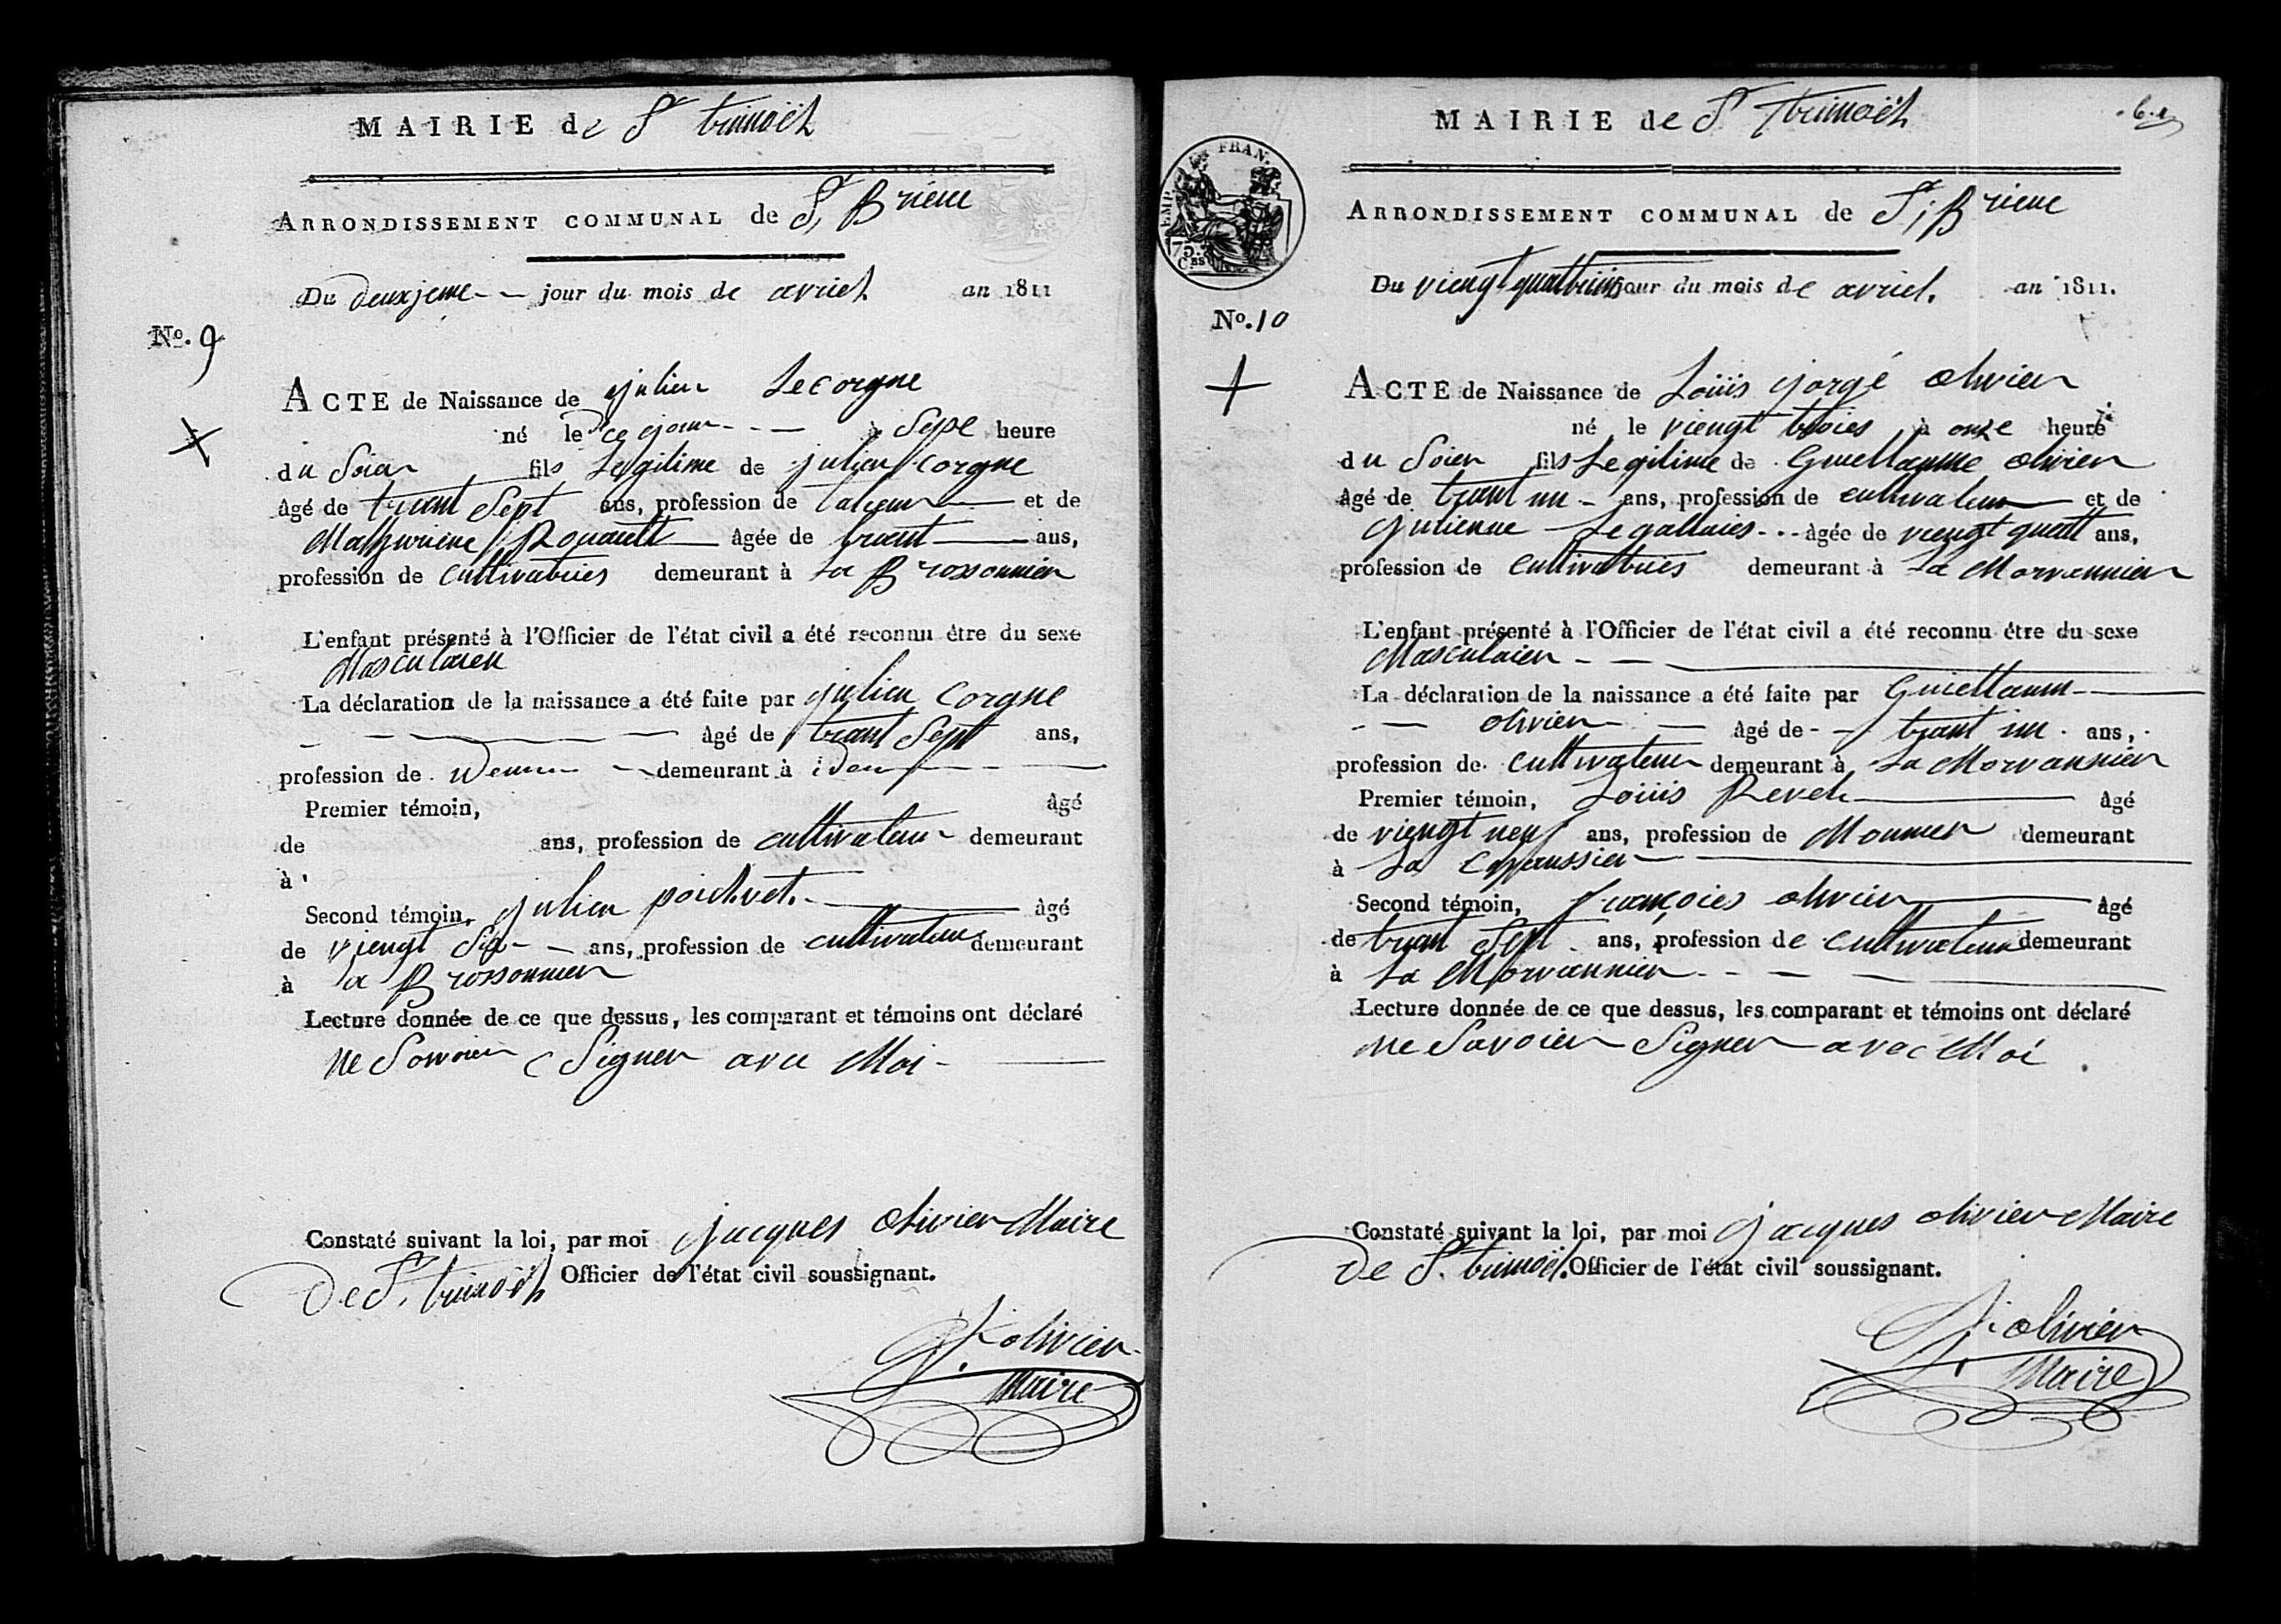 MAIRIE de St trimoël
ARRONDISSEMENT COMMUNAL de St Brieuc
Du deuxjeme jour du mois de avriel an 1811
No. 9
ACTE de Naissance de julien Le corgne
né le ce jour à Sept heure
du Soier fils Legitime de julien corgne
âgé de trant Sept ans, profession de et de
Mathurinne Rouault âgée de trant ans,
profession de cultivatries demeurant à La Brossonnier
L'enfant présenté à l'Officier de l'état civil a été reconnu être du sexe
Masculaien
La déclaration de la naissance a été faite par julien Corgne
âgé de trant Sept ans,
profession de demeurant à
Premier témoin, âgé
de ans, profession de cultivateur demeurant
à
Second témoin, julien poidvet âgé
de viengt Six ans, profession de cultivateur demeurant
à La Brossonnier
Lecture donnée de ce que dessus, les comparant et témoins ont déclaré
ne Savoier Signer avec Moi
Constaté suivant la loi, par moi jacques olivier Maire
De St trimoël Officier de l'état civil soussignant.
olivier
Maire
MAIRIE de St trimoël
6.
EMP. FRAN.
75. CES
ARRONDISSEMENT COMMUNAL de St Brieuc
Du viengt quattriem jour du mois de avriel. an 1811.
No. 10
ACTE de Naissance de Loüis jorgé olivier
né le viengt troies à onze heure
du Soier fils Legitime de Guiellaume olivier
âgé de trant un ans, profession de cultivateur et de
julienne Le gallaies âgée de viengt quatt ans,
profession de cultivatries demeurant à La Morvannier
L'enfant présenté à l'Officier de l'état civil a été reconnu être du sexe
Masculaien
La déclaration de la naissance a été faite par Guiellaum
olivier âgé de trant un ans,
profession de cultivateur demeurant à La Morvannier
Premier témoin, Loüis Revel âgé
de viengt neuf ans, profession de Mounier demeurant
à La Chaussier
Second témoin, françoies olivier âgé
de trant Sept ans, profession de cultivateur demeurant
à La Morvannier
Lecture donnée de ce que dessus, les comparant et témoins ont déclaré
ne Savoier Signer avec Moi
Constaté suivant la loi, par moi jacques olivier Maire
De St trimoël Officier de l'état civil soussignant.
olivier
Maire